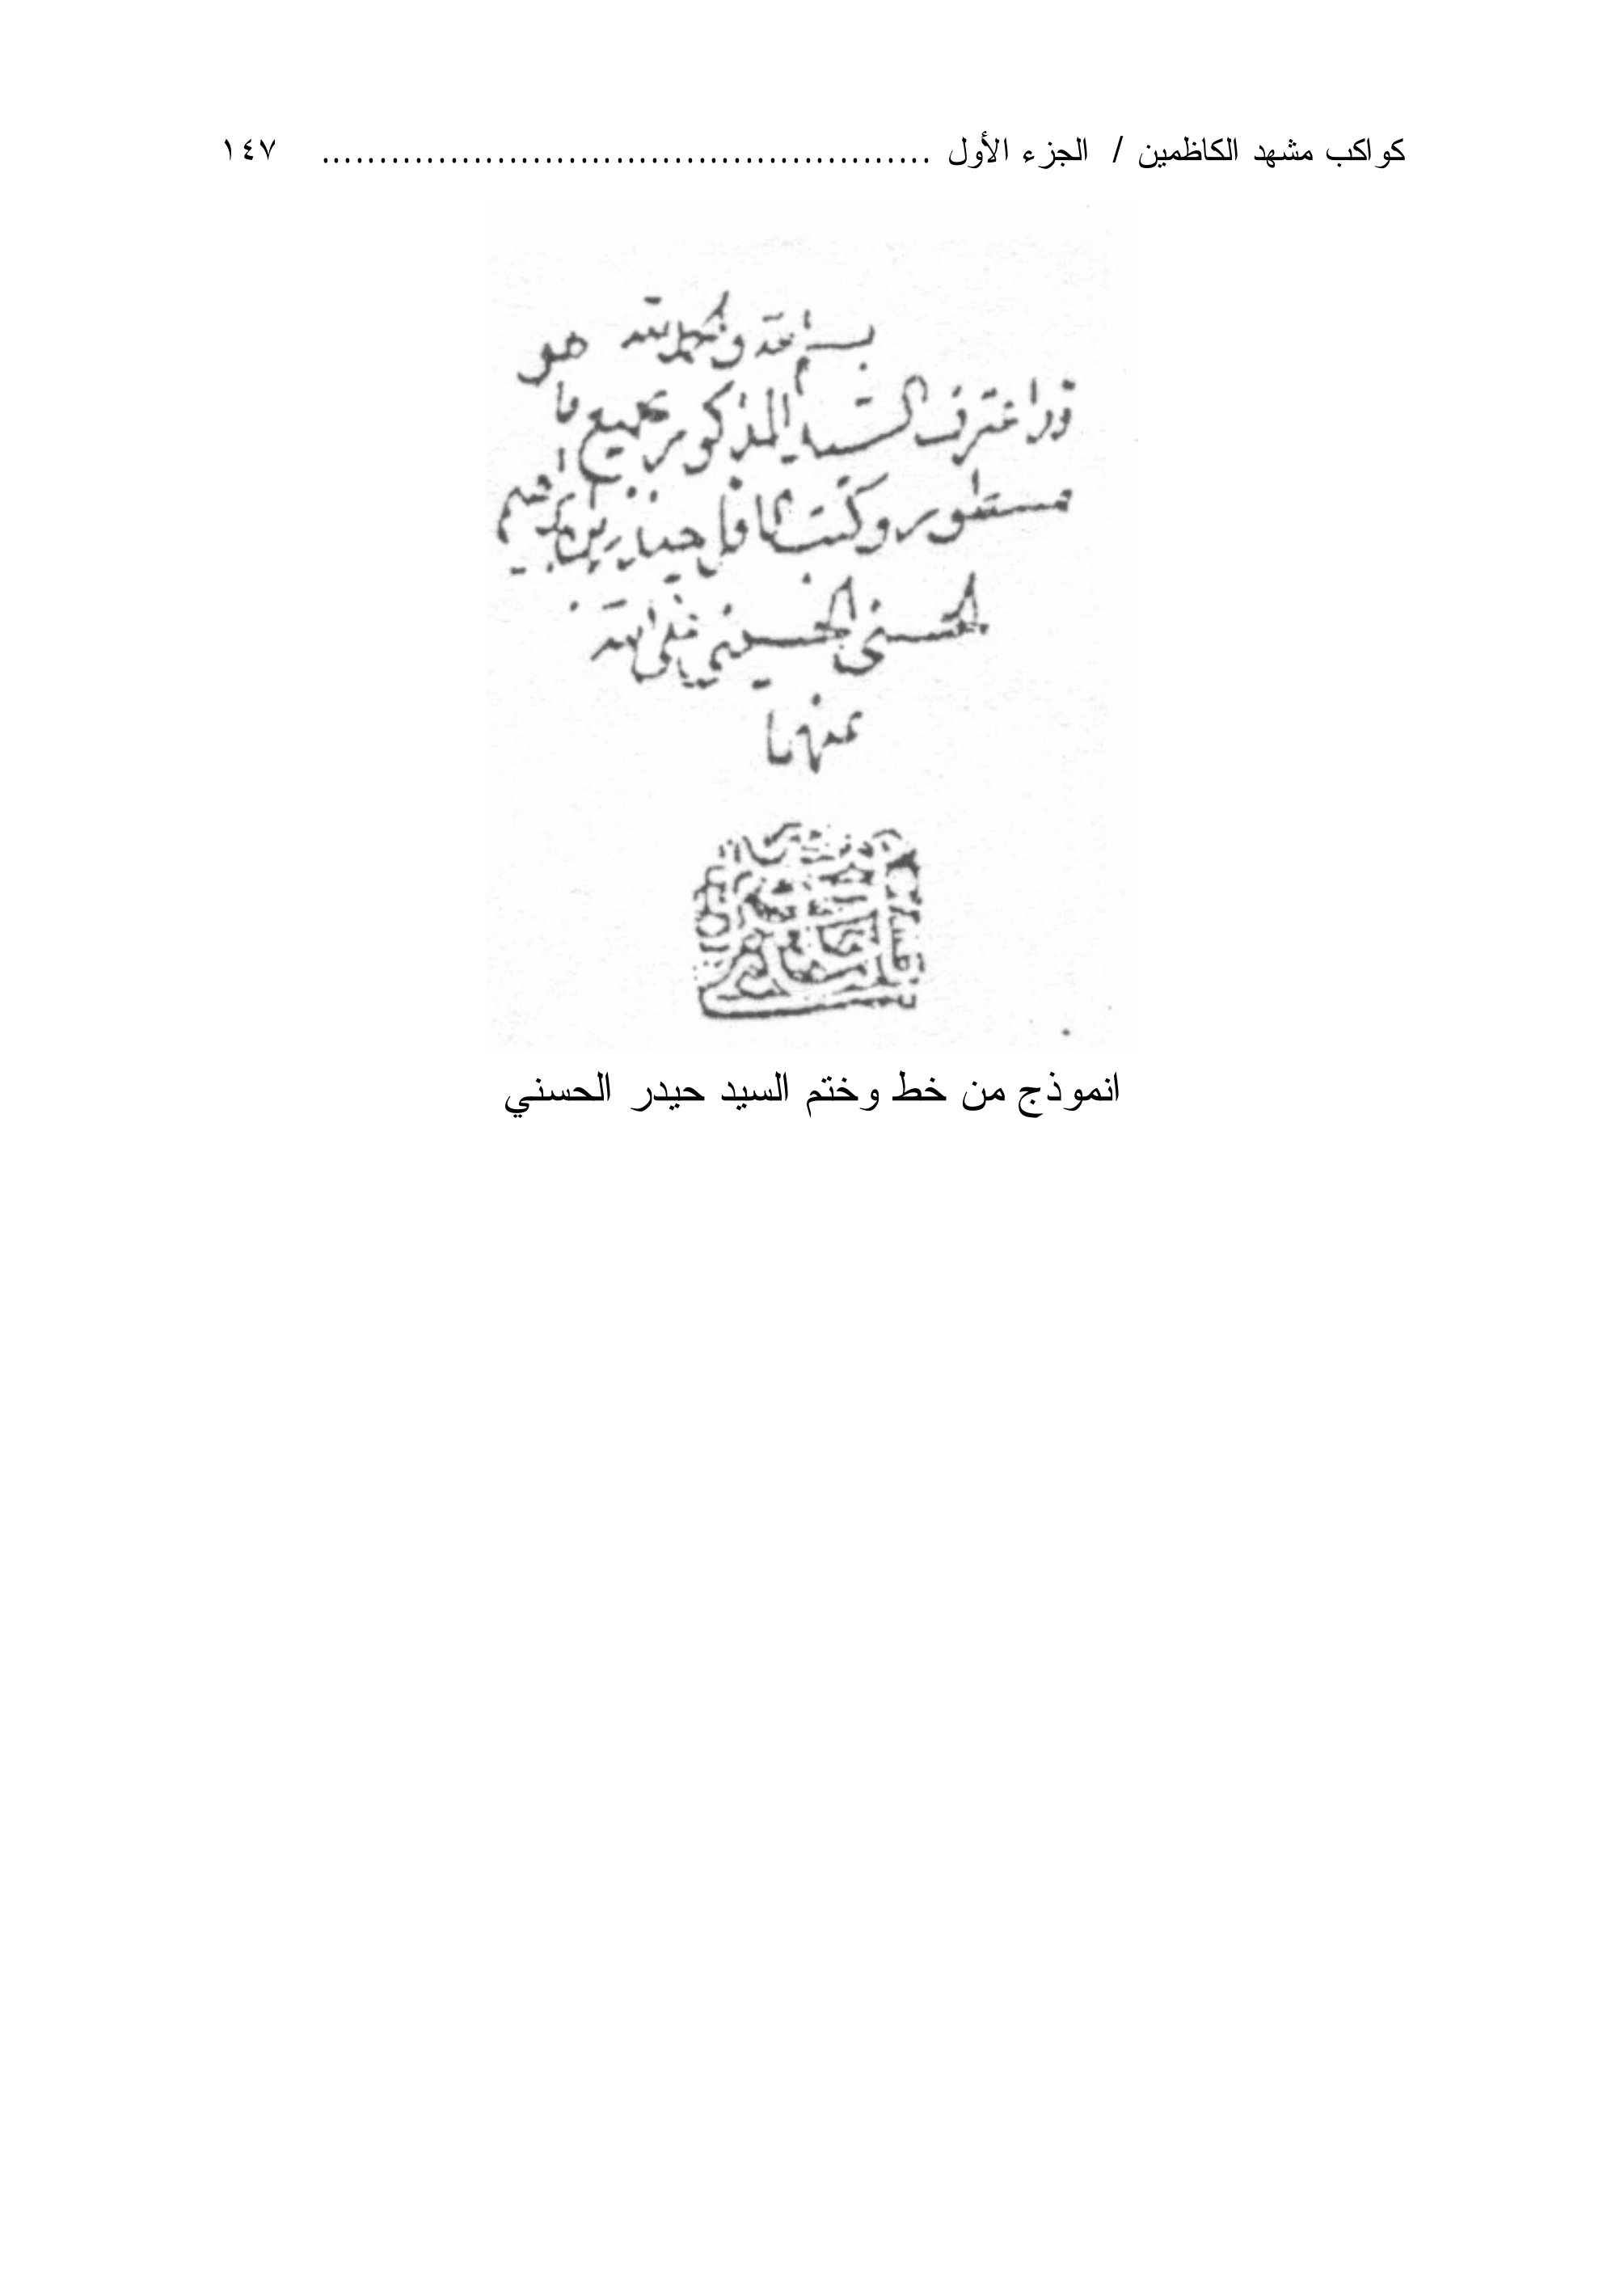 كواكب مشهد الكاظمين / الجزء الأول .................................................... ١٤٧
بسم الله والحمد لله هو
قد اعترف السيد المذكور بجميع ما
مسطور وكتب الأقل حيدر بن ابراهيم
الحسني الحسيني عفى الله
عنهما
انموذج من خط وختم السيد حيدر الحسني